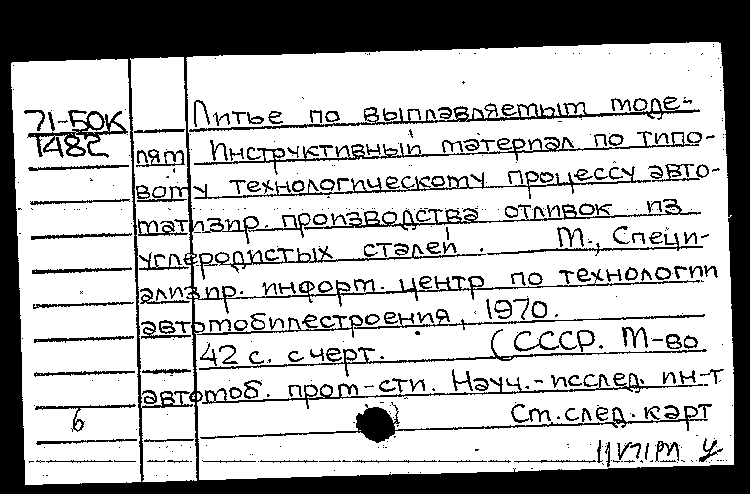 71-БОК
1482
Литье по выплавляемым моде-
лям Инструктивный материал по типо-
вому технологическому процессу авто-
матизир. производства отливок из
углеродистых сталей. М., Специ-
ализир. информ. центр по технологии
автомобилестроения, 1970.
42 с. с черт. (СССР. М-во
автомоб. пром-сти. Науч.-исслед. ин-т
6 Ст. след. карт